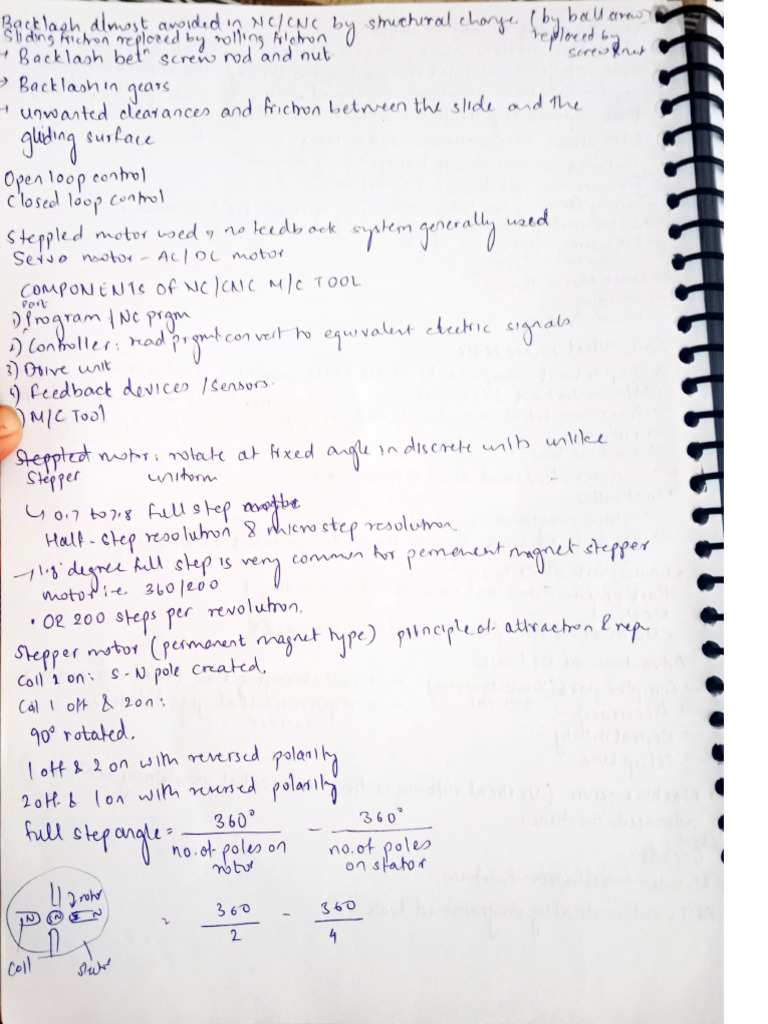 Backlash almost avoided in NC/CNC by structural change (by ball screw
Sliding friction replaced by rolling friction replaced by
→ Backlash betn screw rod and nut screw & nut
→ Backlash in gears
→ unwanted clearances and friction between the slide and the
gliding surface
Open loop control
Closed loop control
Steppled motor used, no feedback system generally used
Servo motor - AC/DC motor
COMPONENTS OF NC/CNC M/C TOOL
1) Part Program / NC prgm
2) Controller: read prgm & convert to equivalent electric signals
3) Drive unit
4) Feedback devices / Sensors.
) M/C Tool
Steppted motor: rotate at fixed angle in discrete units unlike
Stepper uniform
↳ 0.7 to 7.8 full step
Half-step resolution & micro step resolution.
→ 1.8° degree full step is very common for permenent magnet stepper
motor i.e. 360/200
• OR 200 steps per revolution.
Stepper motor (permenent magnet type) principle of attraction & rep
Coil 1 on: S-N pole created.
Coil 1 off & 2 on:
90° rotated.
1 off & 2 on with reversed polarity
2 off & 1 on with reversed polarity
full step angle = 360° / no. of poles on rotor - 360° / no. of poles on stator
= 360 / 2 - 360 / 4
rotor
N N S N
Coil stator